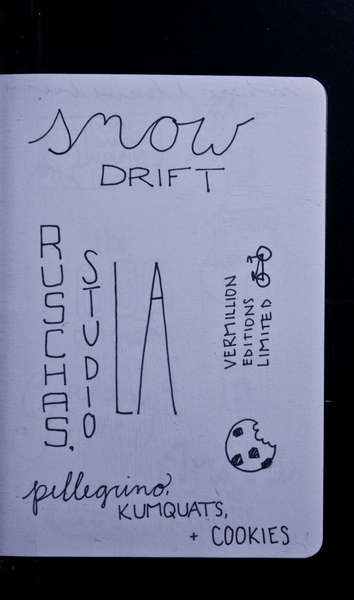 snow
DRIFT
RUSCHAS.
STUDIO
LA
VERMILLION
EDITIONS
LIMITED
pellegrino,
KUMQUATS,
+ COOKIES